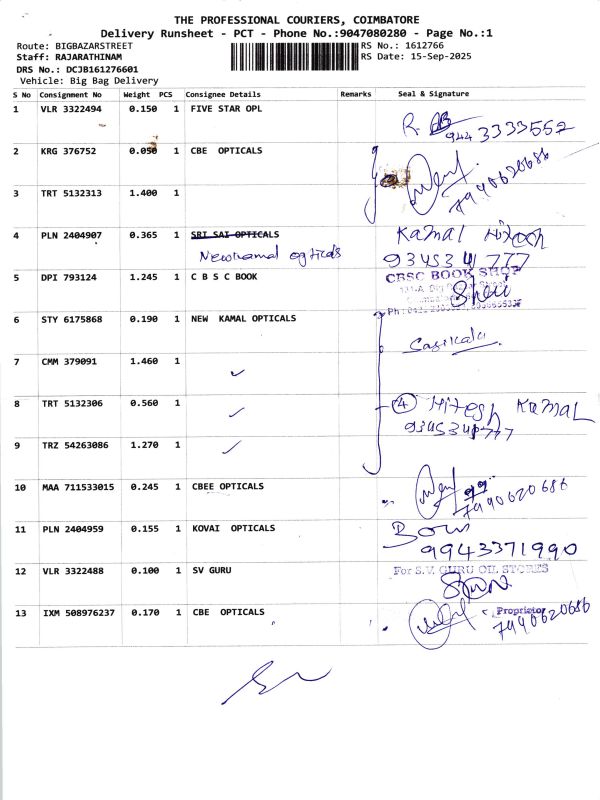 THE PROFESSIONAL COURIERS, COIMBATORE
Delivery Runsheet - PCT - Phone No.:9047080280 - Page No.:1
Route: BIGBAZARSTREET
RS No.: 1612766
Staff: RAJARATHINAM
RS Date: 15-Sep-2025
DRS No.: DCJB161276601
Vehicle: Big Bag Delivery
S No Consignment No Weight PCS Consignee Details Remarks Seal & Signature
1 VLR 3322494 0.150 1 FIVE STAR OPL
9443333552
2 KRG 376752 0.050 1 CBE OPTICALS
7940620686
3 TRT 5132313 1.400 1
4 PLN 2404907 0.365 1 SRI SAI OPTICALS Kamal Hitesh
Newkamal opticals 9345341777
5 DPI 793124 1.245 1 C B S C BOOK CBSC BOOK SHOP
6 STY 6175868 0.190 1 NEW KAMAL OPTICALS
Sasikala
7 CMM 379091 1.460 1
8 TRT 5132306 0.560 1 4 Hitesh Kamal
9345341777
9 TRZ 54263086 1.270 1
10 MAA 711533015 0.245 1 CBEE OPTICALS
7940620686
11 PLN 2404959 0.155 1 KOVAI OPTICALS
9943371990
12 VLR 3322488 0.100 1 SV GURU For S.V. GURU OIL STORES
13 IXM 508976237 0.170 1 CBE OPTICALS Proprietor
7940620686